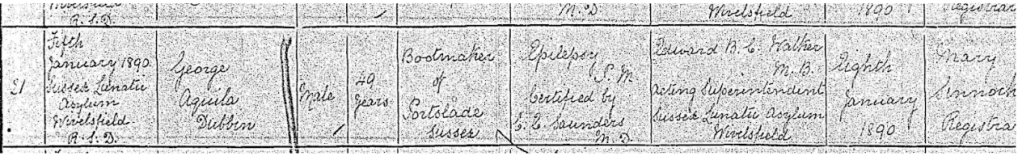 R.S.D.
M.D.
Wivelsfield
1890
Registrar
21
Fifth
January 1890
Sussex Lunatic
Asylum
Wivelsfield
R.S.D.
George
Aquila
Dubbin
Male
49
Years
Bootmaker
of
Portslade
Sussex
Epilepsy
P.M.
Certified by
C.E. Saunders
M.D.
Edward B.C. Walker
M.B.
Acting Superintendent
Sussex Lunatic Asylum
Wivelsfield
Eighth
January
1890
Mary
Sinnock
Registra